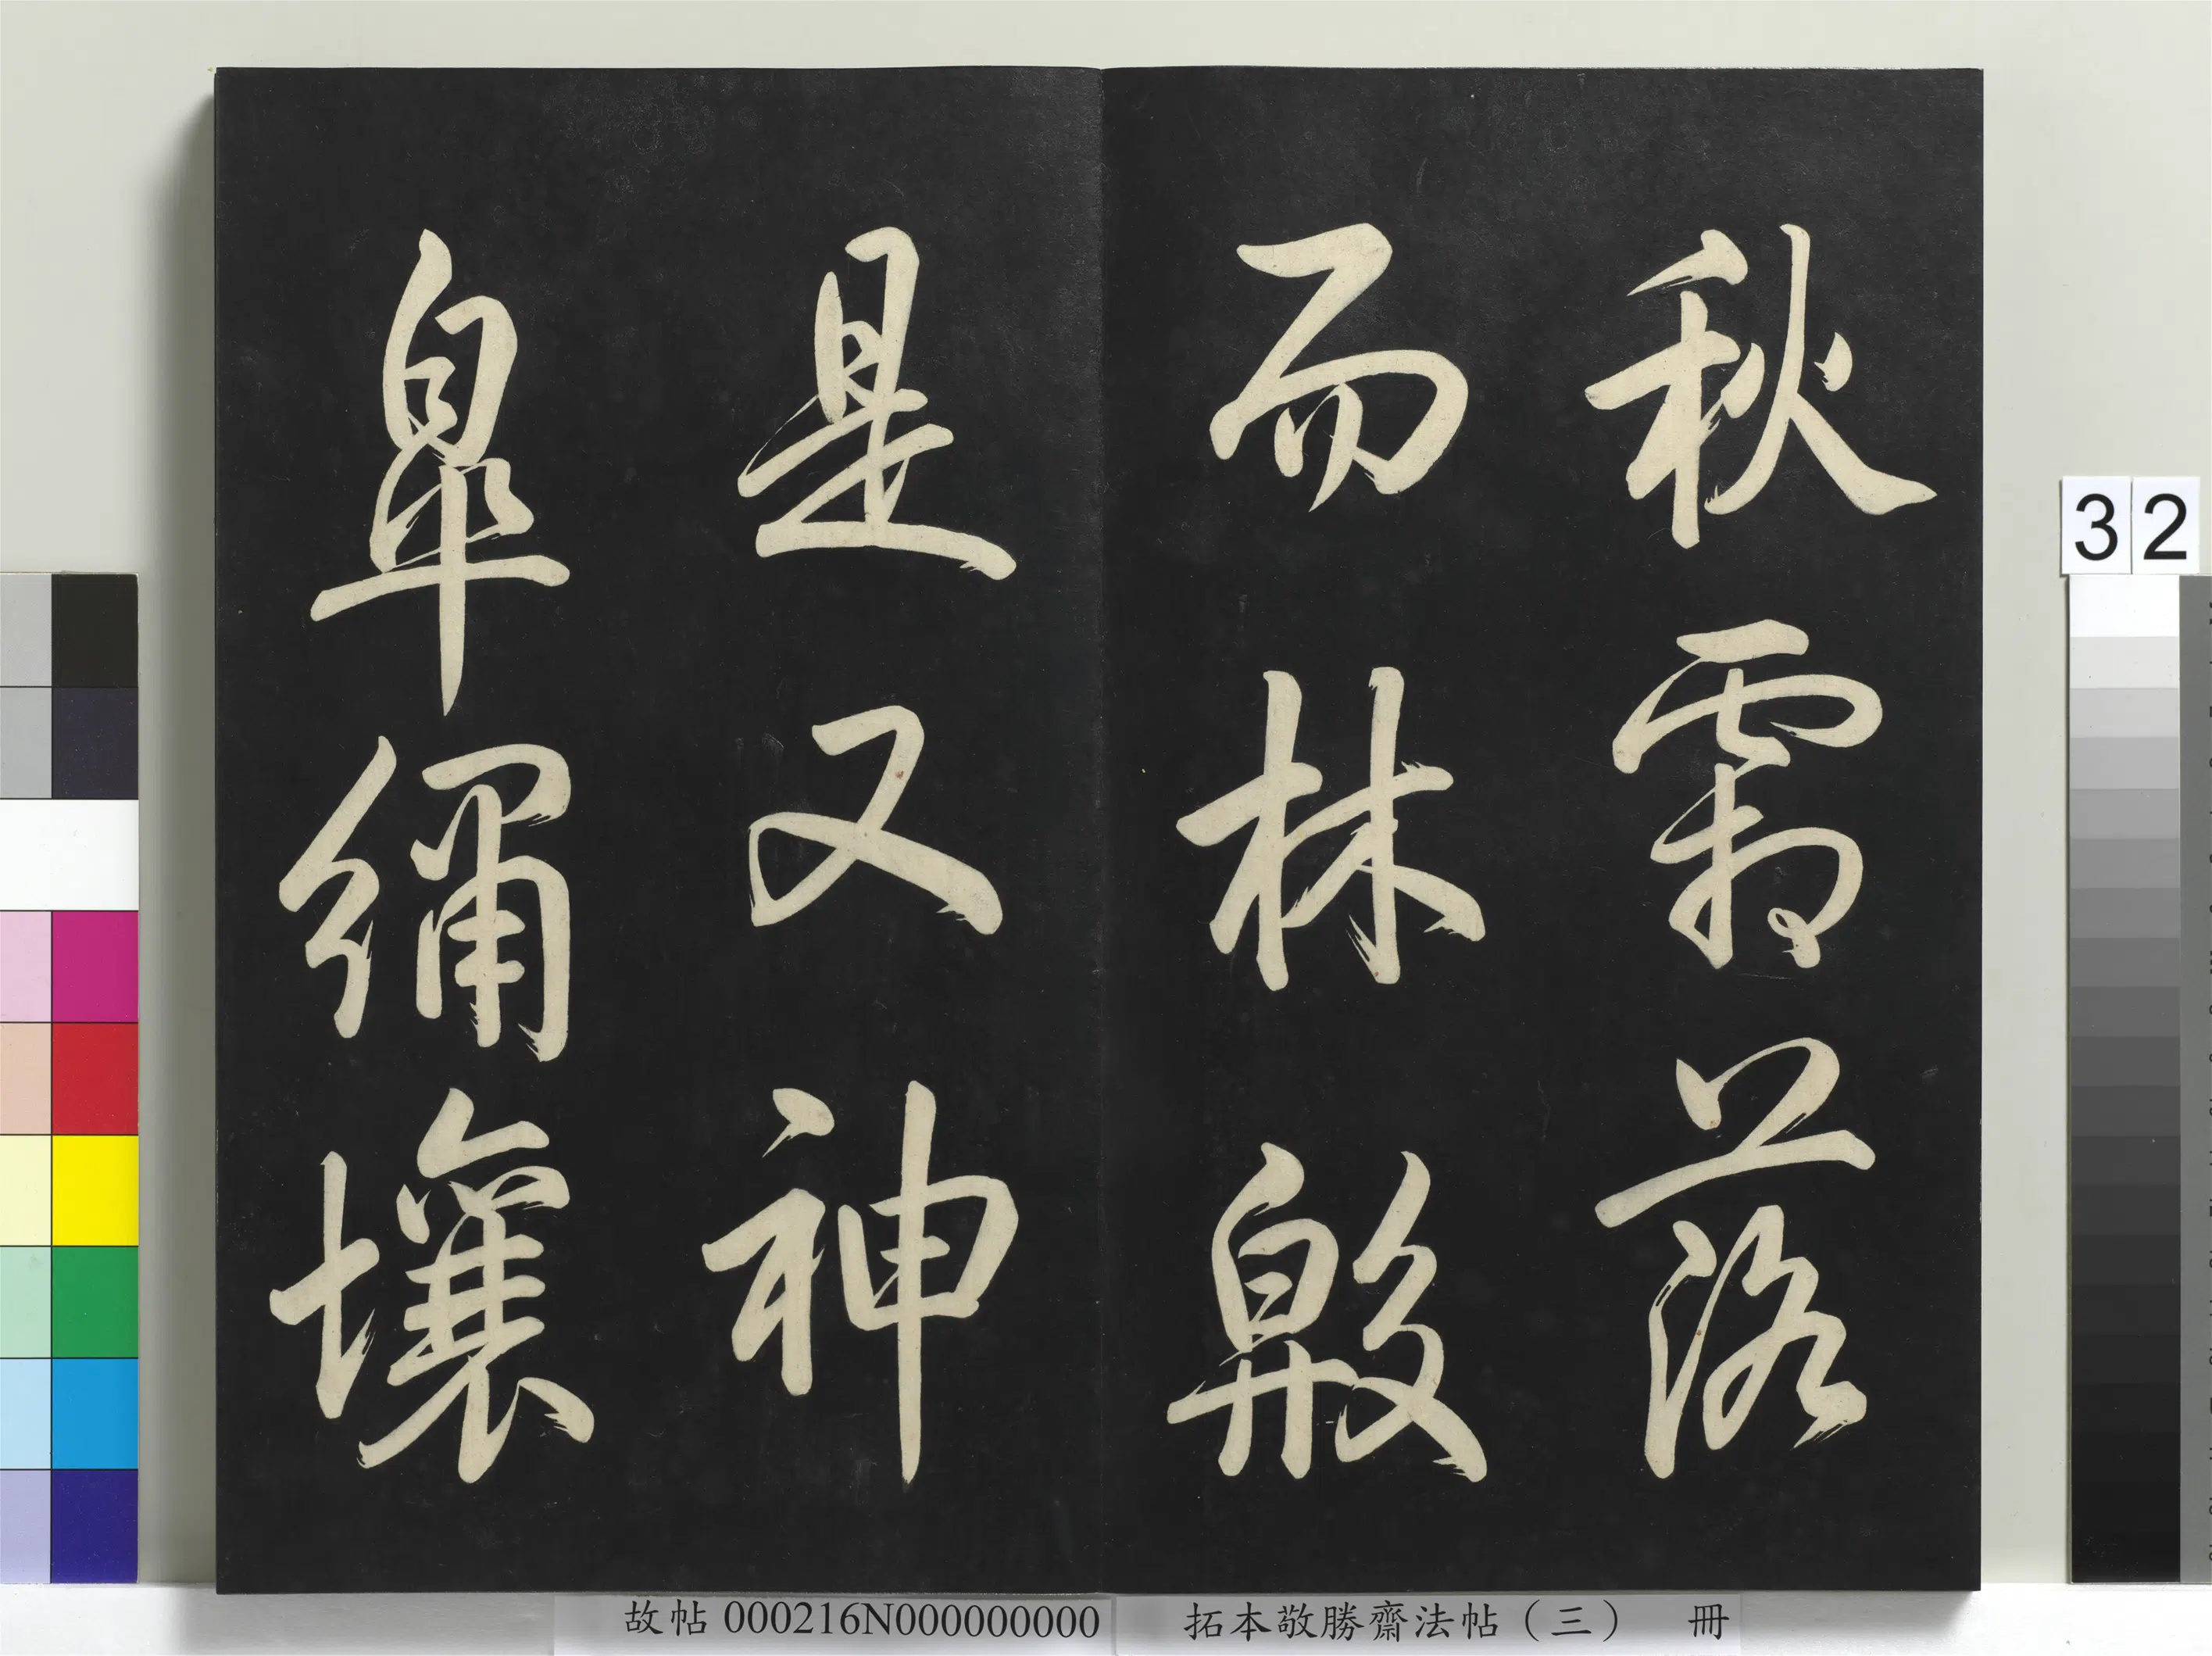 秋霜落
而林
是又神
皐繡壤
32
故帖000216N000000000 拓本敬勝齋法帖（三） 冊